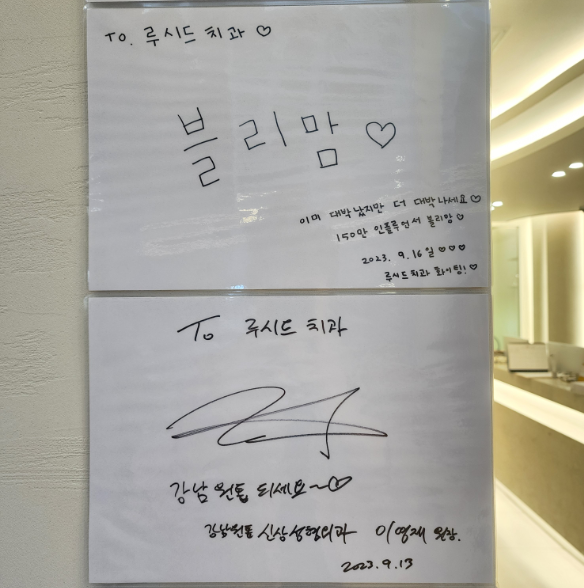 TO. 루시드 치과 ♡
블리맘 ♡
이미 대박났지만 더 대박나세요 ♡
150만 인플루언서 블리맘 ♡
2023. 9. 16일 ♡♡♡
루시드치과 화이팅! ♡
To 루시드 치과
강남 원톱 되세요~♡
강남원톱 신상성형외과 이영재 원장.
2023. 9. 13